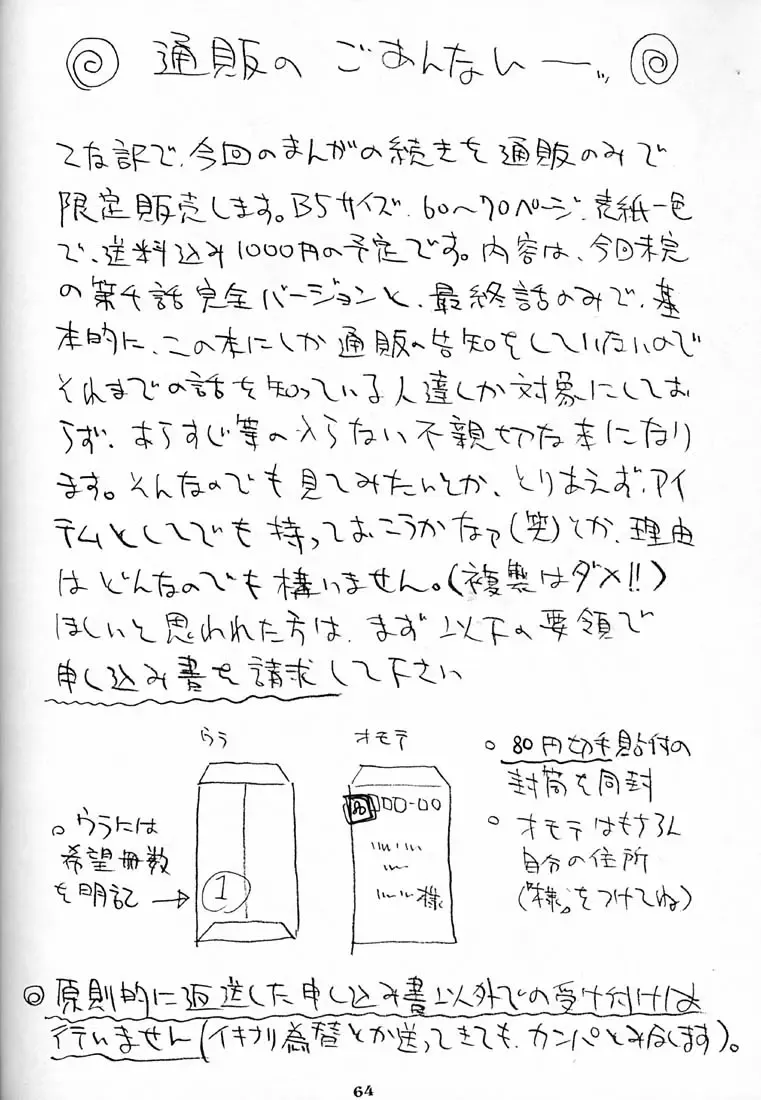 通販のごあんないー〃
てな訳で、今回のまんがの続きを通販のみで
限定販売します。B5サイズ、60〜70ページ、表紙一色
で、送料込み1000円の予定です。内容は、今回未完
の第4話完全バージョンと、最終話のみで、基
本的に、この本にしか通販の告知をしていないので
それまでの話を知っている人達しか対象にしてお
らず、あらすじ等の入らない不親切な本になり
ます。そんなのでも見てみたいとか、とりあえず、アイ
テムとしてでも持っておこうかなァ(笑)とか、理由
はどんなのでも構いません。(複製はダメ!!)
ほしいと思われた方は、まず以下の要領で
申し込み書を請求して下さい
ウラ
オモテ
80
様
1
。ウラには
希望冊数
を明記→
。80円切手貼付の
封筒を同封
。オモテはもちろん
自分の住所
(“様”をつけてね)
◎原則的に返送した申し込み書以外での受け付けは
行いません(イキナリ為替とか送ってきても、カンパとみなします)。
64